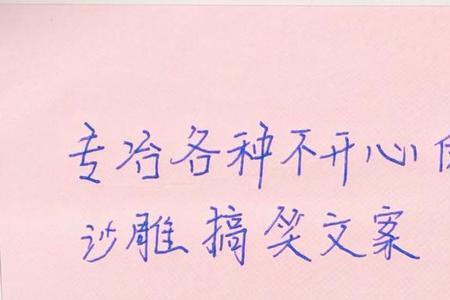 专治各种不开心
沙雕搞笑文案